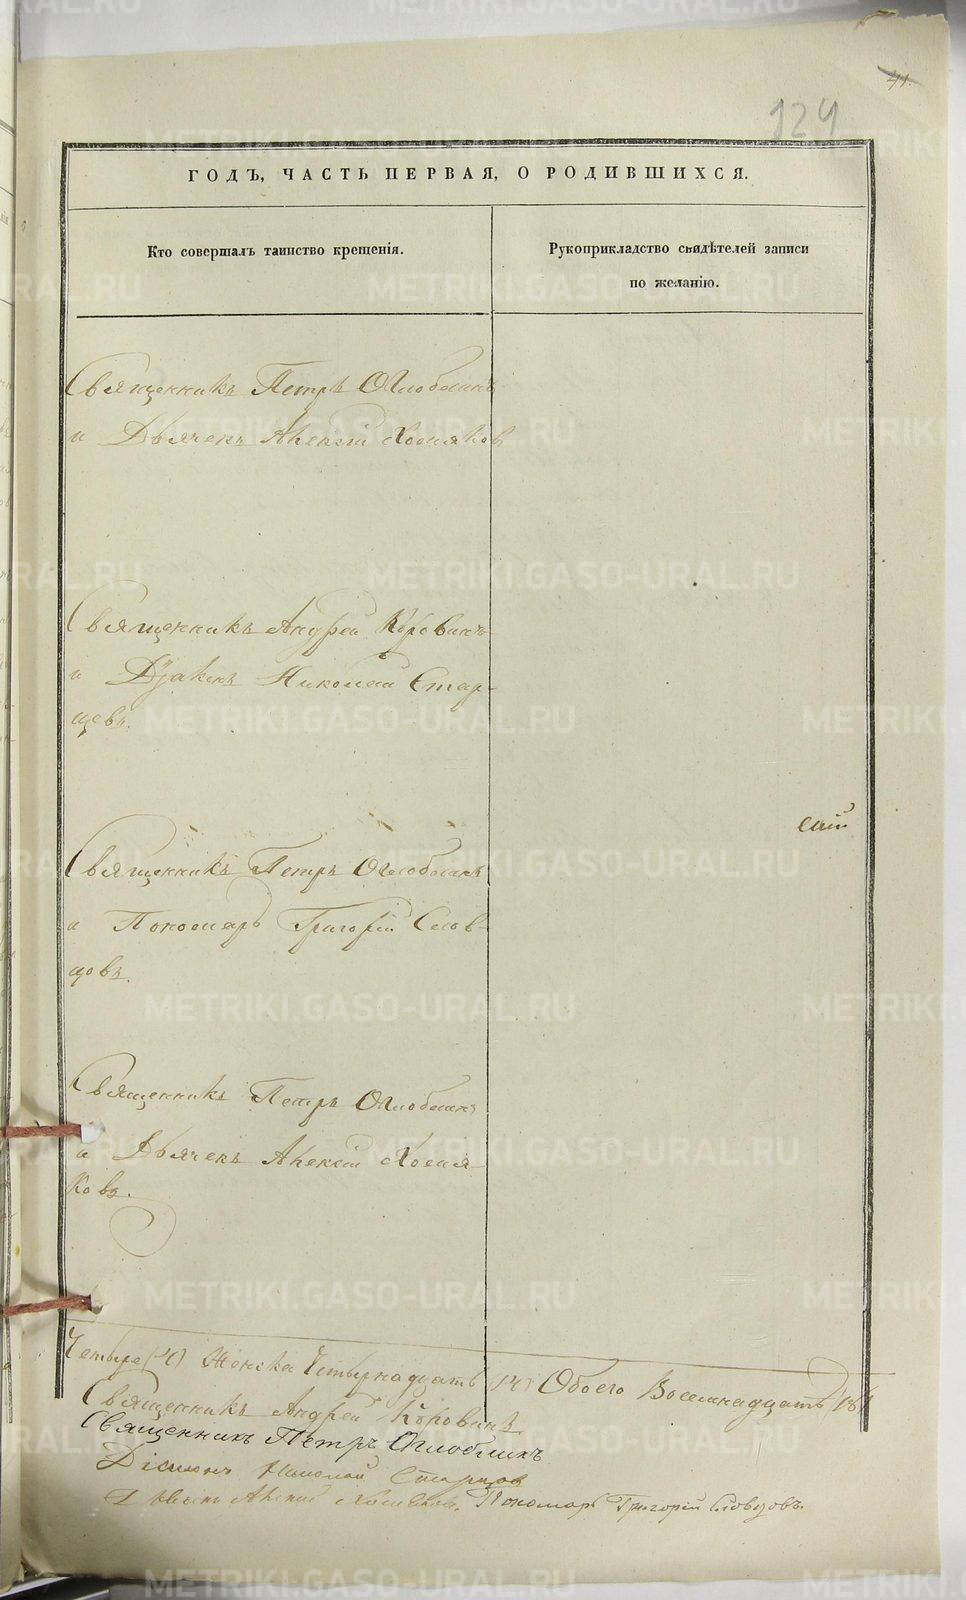 41.
124
ГОДЪ, ЧАСТЬ ПЕРВАЯ, О РОДИВШИХСЯ.
Кто совершалъ таинство крещенія.
Рукоприкладство свидѣтелей записи
по желанію.
Священникъ Петръ Оглоблинъ
и Дьячекъ Алексій Хомяков
Священникъ Андрей Коровинъ
и Діаконъ Николай Стар-
цевъ.
Священникъ Петръ Оглоблинъ
и Пономарь Григорій Слов-
цовъ.
Священникъ Петръ Оглоблинъ
и Дьячекъ Алексій Хомя
ковъ.
Четыре (4) Женска Четырнадцать (14) Обоего Восемнадцать (18)
Священникъ Андрей Коровинъ
Священникъ Петръ Оглоблинъ
Діаконъ Николай Старцов
Дьячекъ Алексій Хомяковъ. Пономарь Григорій Словцовъ.
METRIKI.GASO-URAL.RU